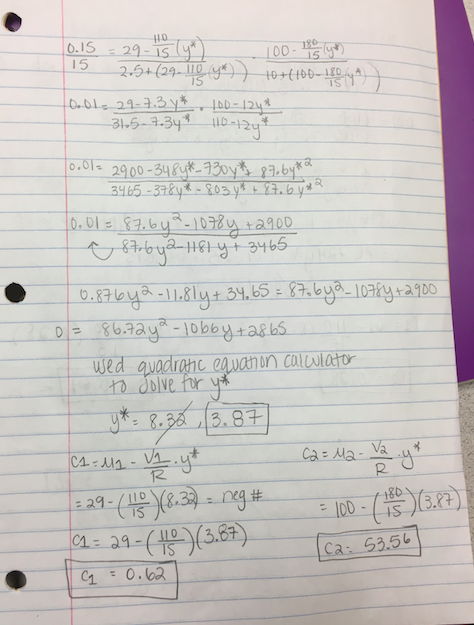 0.15/15 = 29 - 110/15 (y*) / 2.5 + (29 - 110/15 (y*)) · 100 - 180/15 (y*) / 10 + (100 - 180/15 (y*))
0.01 = 29 - 7.3y* / 31.5 - 7.3y* · 100 - 12y* / 110 - 12y*
0.01 = 2900 - 348y* - 730y* + 87.6y*² / 3465 - 378y* - 803y* + 87.6y*²
0.01 = 87.6y² - 1078y + 2900 / 87.6y² - 1181y + 3465
0.876y² - 11.81y + 34.65 = 87.6y² - 1078y + 2900
0 = 86.72y² - 1066y + 2865
used quadratic equation calculator
to solve for y*
y* = 8.32, 3.87
C1 = M1 - V1/R · y*
= 29 - (110/15)(8.32) = neg #
C1 = 29 - (110/15)(3.87)
C1 = 0.62
C2 = M2 - V2/R · y*
= 100 - (180/15)(3.87)
C2 = 53.56